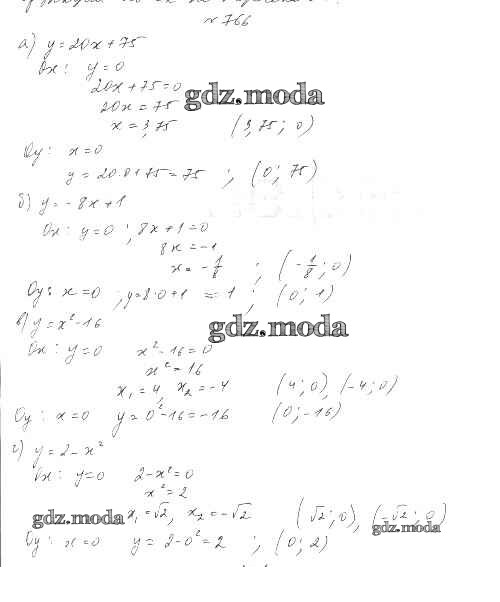 № 766
а) y=20x+75
Ox: y=0
20x+75=0
20x=75
gdz.moda
x=3,75 (3,75; 0)
Oy: x=0
y=20·0+75=75 ; (0; 75)
б) y=-8x+1
Ox: y=0 ; 8x+1=0
8x=-1
x=-1/8 ; (-1/8; 0)
Oy: x=0 ; y=8·0+1=1 ; (0; 1)
gdz.moda
в) y=x²-16
Ox: y=0 x²-16=0
x²=16
x₁=4, x₂=-4 (4; 0), (-4; 0)
Oy: x=0 y=0²-16=-16 (0; -16)
г) y=2-x²
Ox: y=0 2-x²=0
x²=2
gdz.moda x₁=√2, x₂=-√2 (√2; 0), (-√2; 0)
gdz.moda
Oy: x=0 y=2-0²=2 ; (0; 2)